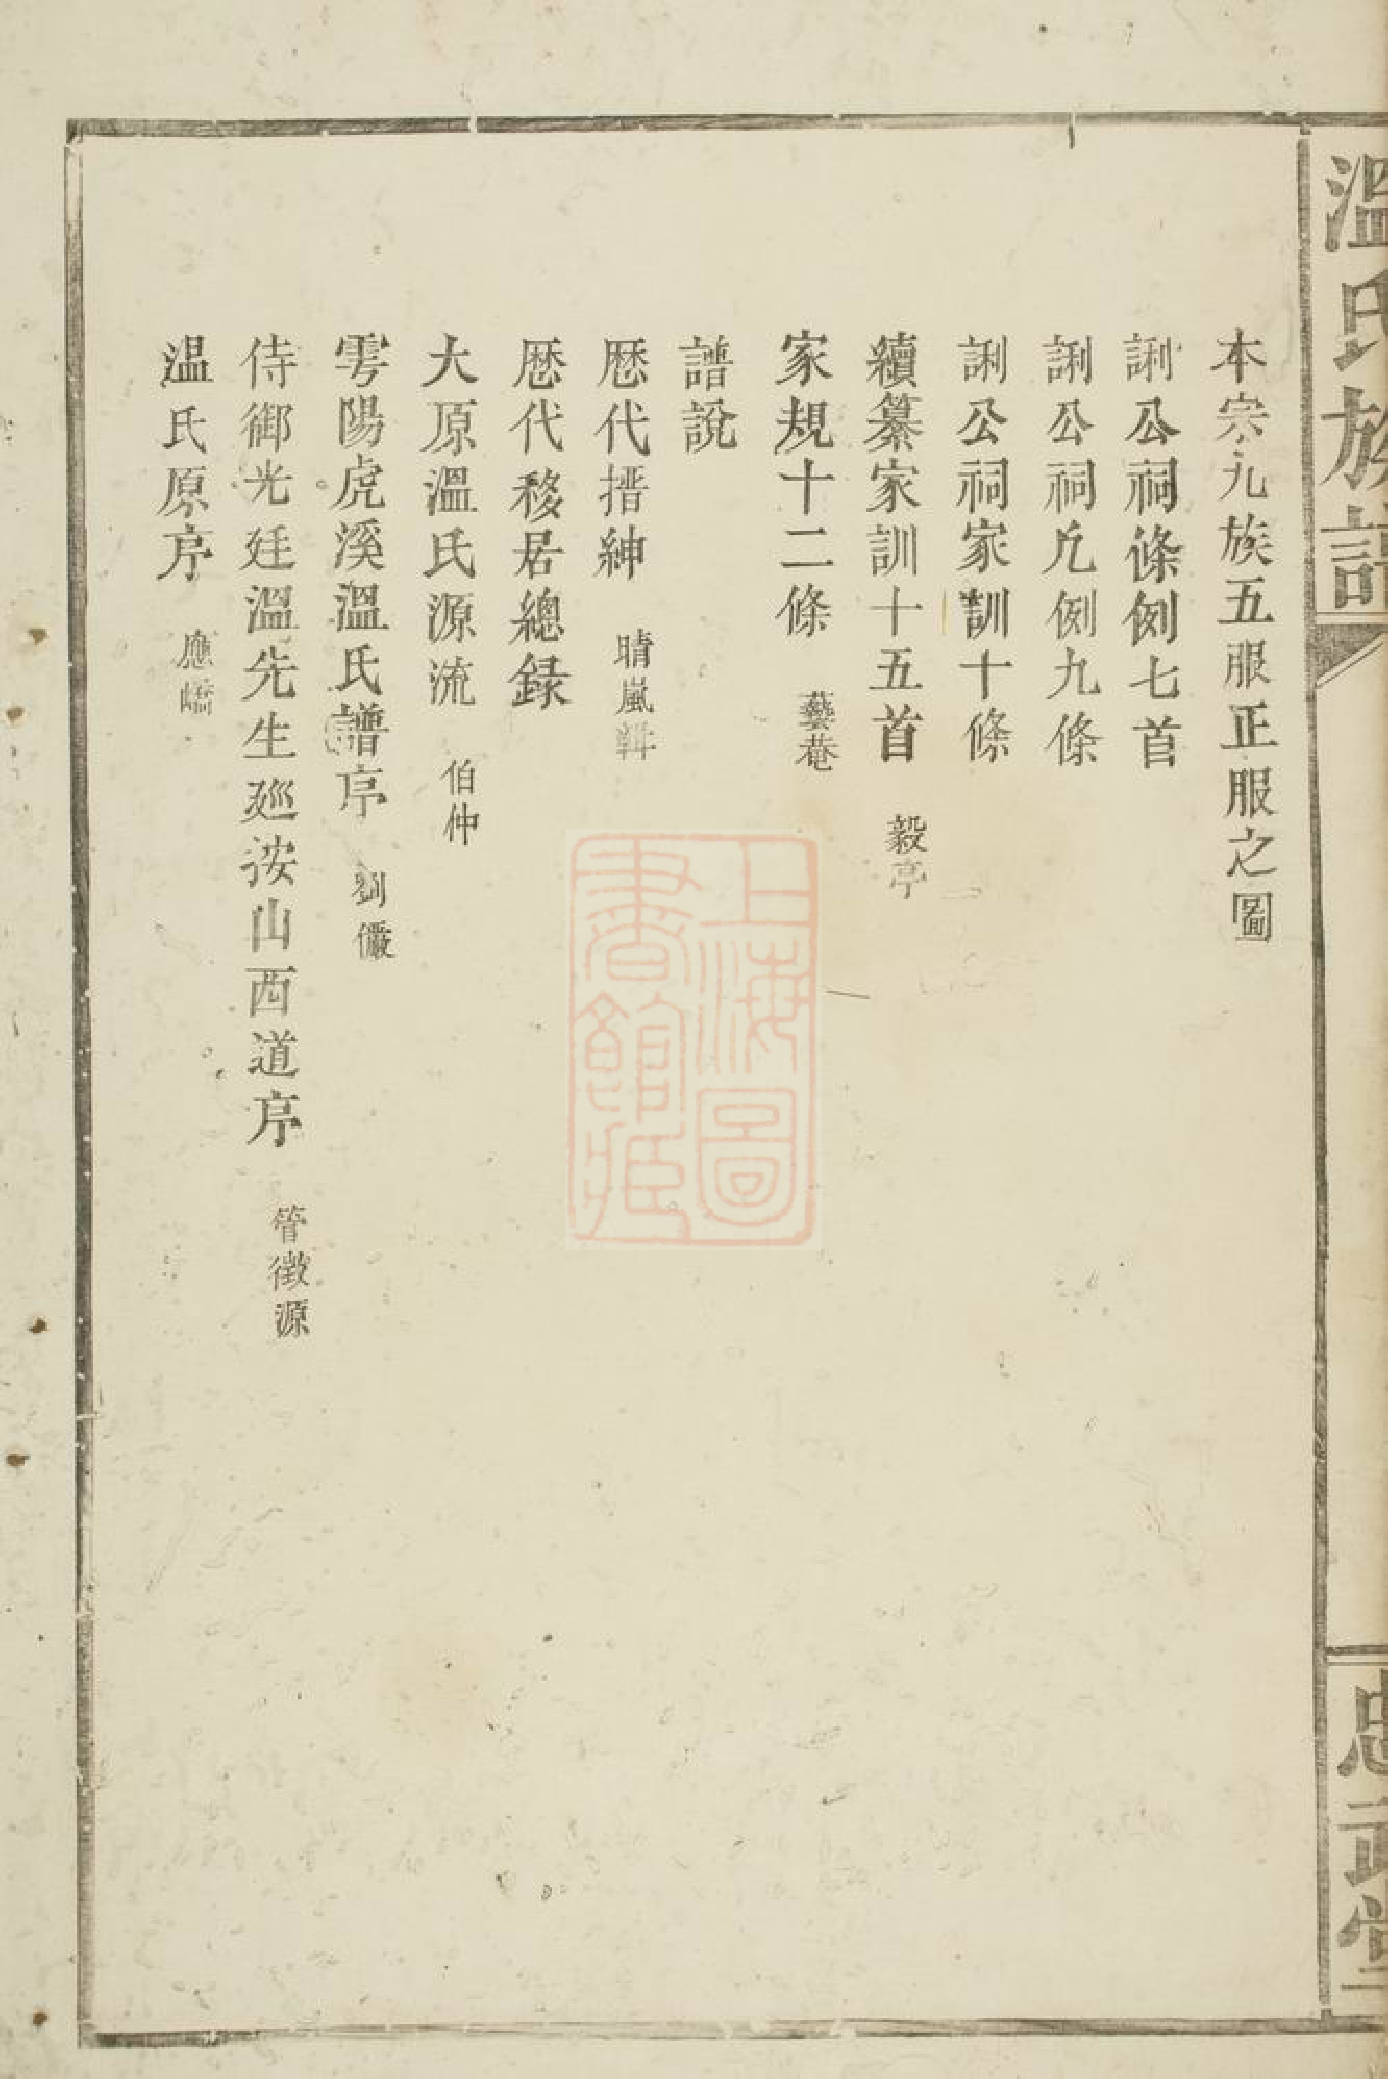 溫氏族譜
忠武堂
本宗九族五服正服之圖
誗公祠條例七首
誗公祠凡例九條
誗公祠家訓十條
續纂家訓十五首 毅亭
家規十二條 藝菴
譜說
歴代搢紳 晴嵐輯
歴代移居總録
大原溫氏源流 伯仲
雩陽虎溪溫氏譜序 劉儼
侍御光廷溫先生廵按山西道序 管徵源
温氏原序 應嶠
上海圖書館藏